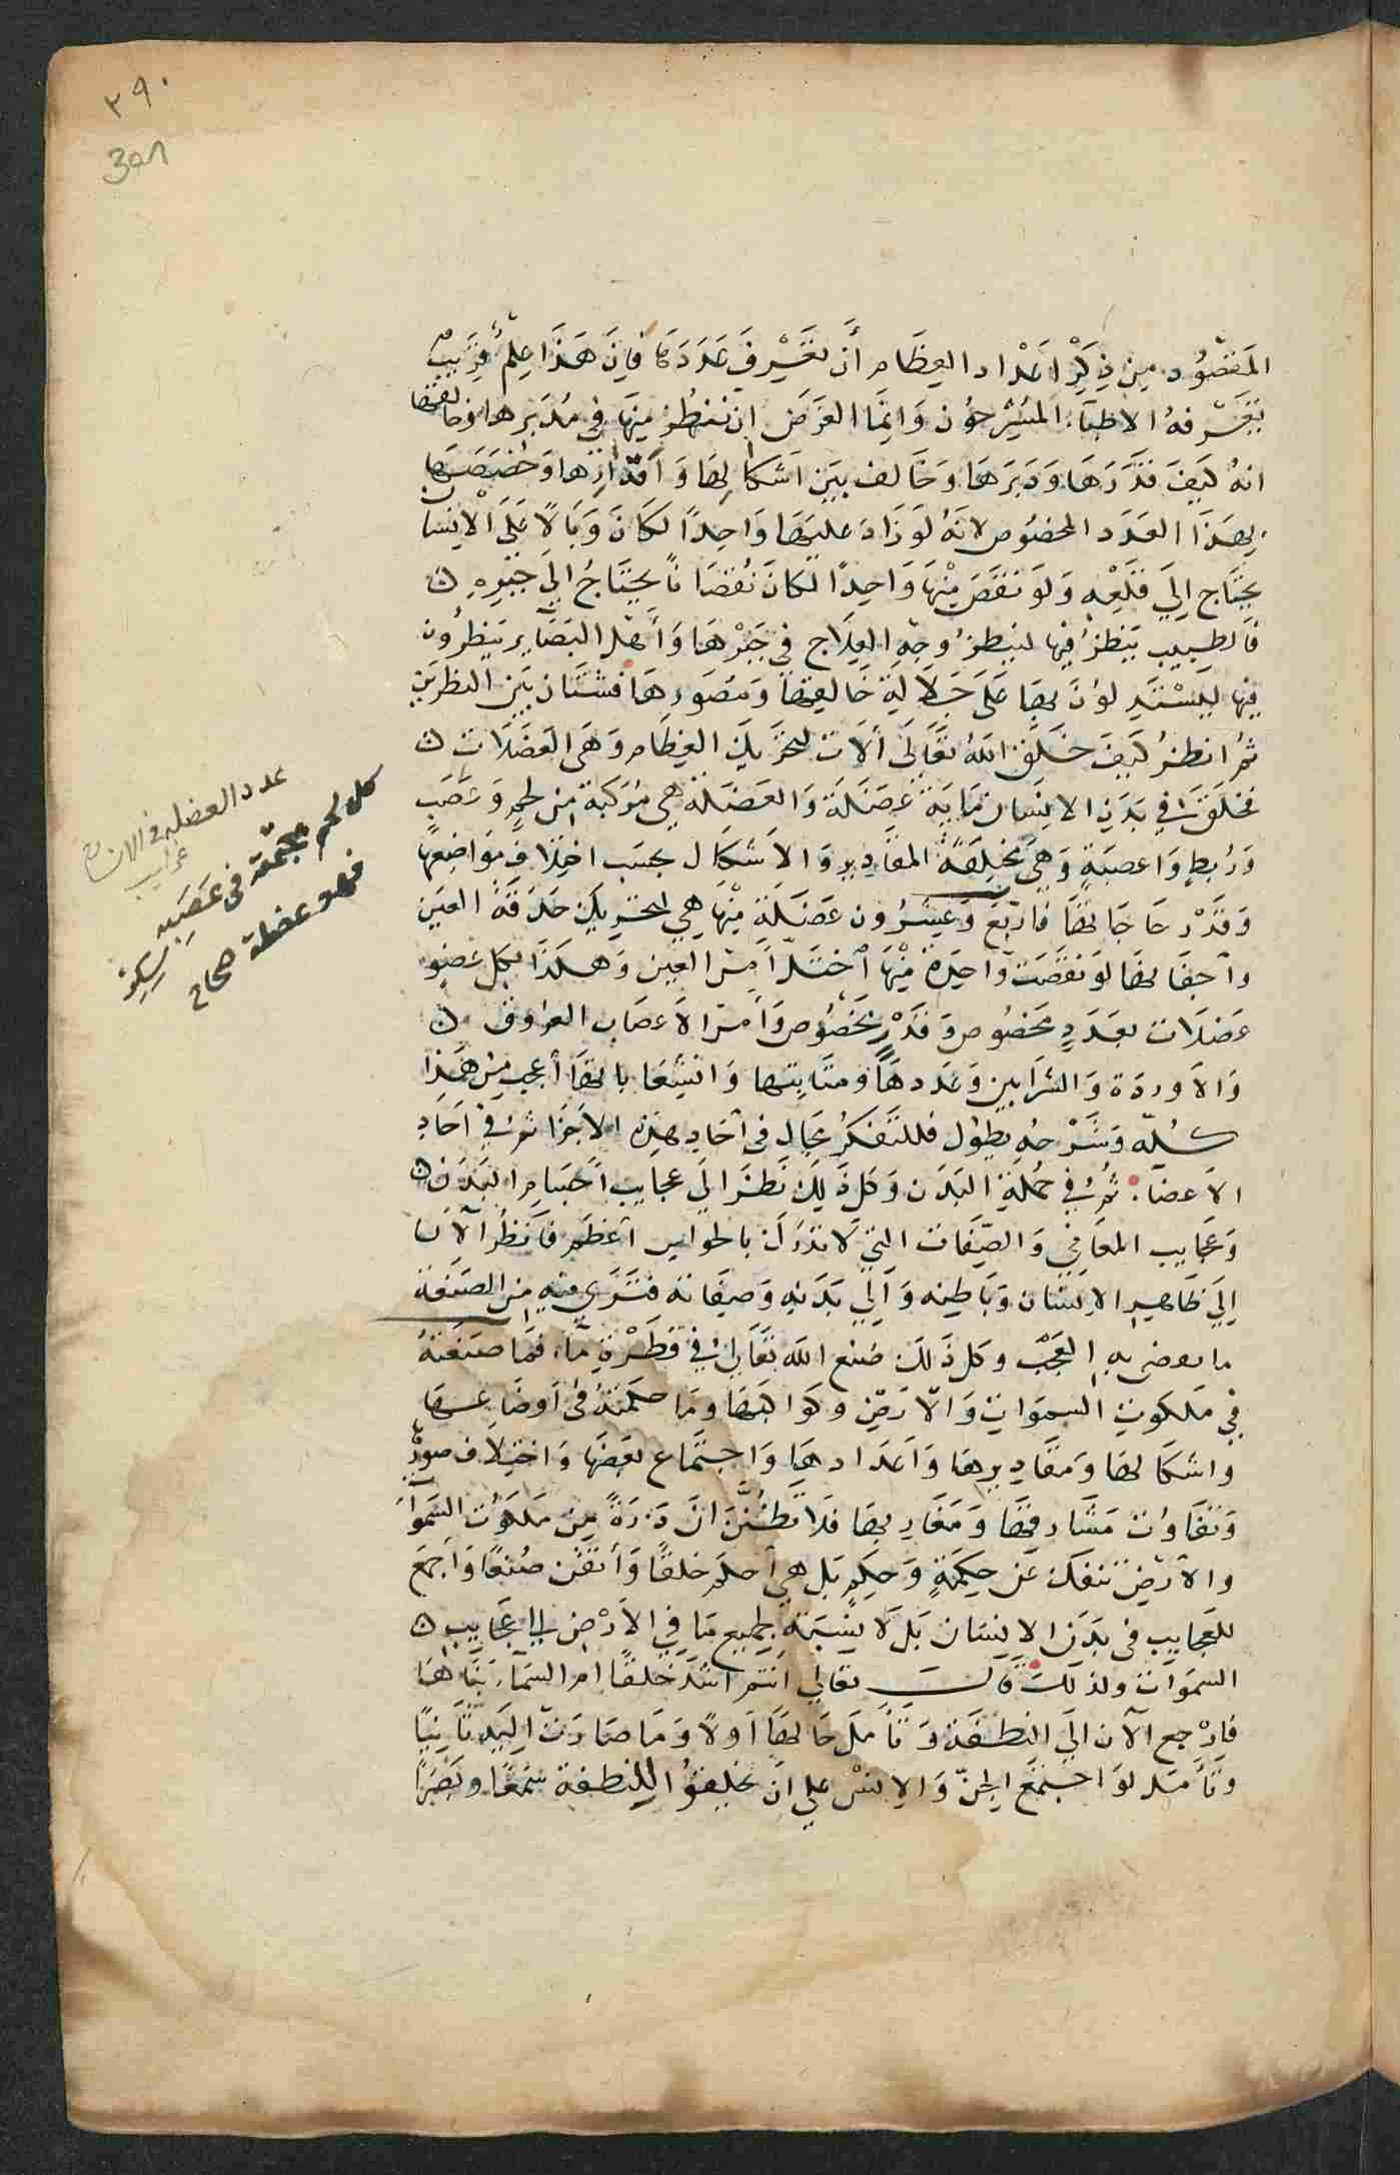 ٢٩٠
301
المقصود من ذكر اعداد العظام أن نعرف عددها فان هذا علم قريب
يعرفه الاطباء المشرحون وانما الغرض ان ننظر منها في مدبرها وخالقها
انه كيف قدرها ودبرها وخالف بين اشكالها وأقدارها وخصصها
بهذا العدد المخصوص لانه لو زاد عليها واحدا لكان وبالا على الانسان
يحتاج الي قلعه ولو نقص منها واحدا لكان نقصانا يحتاج الي جبره
فالطبيب ينظر فيها لينظر وجه العلاج في جبرها وأهل البصاير ينظرون
فيها ليستدلوا بها على جلالة خالقها ومصورها فشتان بين النظرين
ثم انظر كيف خلق الله تعالى ألات لتحريك العظام وهي العضلات
فخلق في بدن الانسان ماية عضلة والعضلة هي مركبة من لحم وعصب
وربط واعصبة وهي مختلفة المقادير والاشكال بحسب اختلاف مواضعها
وقدر حاجاتها فاربع وعشرون عضلة منها هي لتحريك حدقة العين
وأجفانها لو نقصت واحدة منها أختل أمر العين وهكذا لكل عضو
عضلات بعدد مخصوص وقدر مخصوص وأمر الاعصاب العروق
والاوردة والشرايين وعددها ومنابتها وانشعاباتها أعجب من هذا
كله وشرحه يطول فللتفكر مجال في آحاد هذه الاجزا ثم في آحاد
الاعضا ثم في جملة البدن وكل ذلك نظر الي عجايب اجسام البدن
وعجايب المعاني والصفات التي لا تدرك بالحواس أعظم فانظر الآن
إلي ظاهر الانسان وباطنه وألي بدنه وصفاته فترى فيه من الصنعة
ما يقضي به العجب وكل ذلك صنع الله تعالى في قطرة ما فما صنعته
في ملكوت السموات والارض وكواكبها وما حكمته في أوضاعها
واشكالها ومقاديرها وأعدادها واجتماع بعضها واختلاف صورها
وتفاوت مشارقها ومغاربها فلا تظنن ان ذرة من ملكوت السموات
والأرض تنفك عن حكمة وحكم بل هي أحكم خلقا وأتقن صنعا وأجمع
للعجايب في بدن الانسان بل لا نسبة لجميع ما في الأرض الي عجايب
السموات ولذلك قال تعالى أانتم اشد خلقا ام السماء بناها
فارجع الآن الي النطفة وتأمل حالها أولا وما صارت إليه ثانيا
وتأمل لو اجتمع الجن والانس علي ان يخلقوا للنطفة سمعا وبصرا
عدد العضلة في الانسان
غرايب
كل لحم مجتمعة في عصب
فهو عضلة صحاح